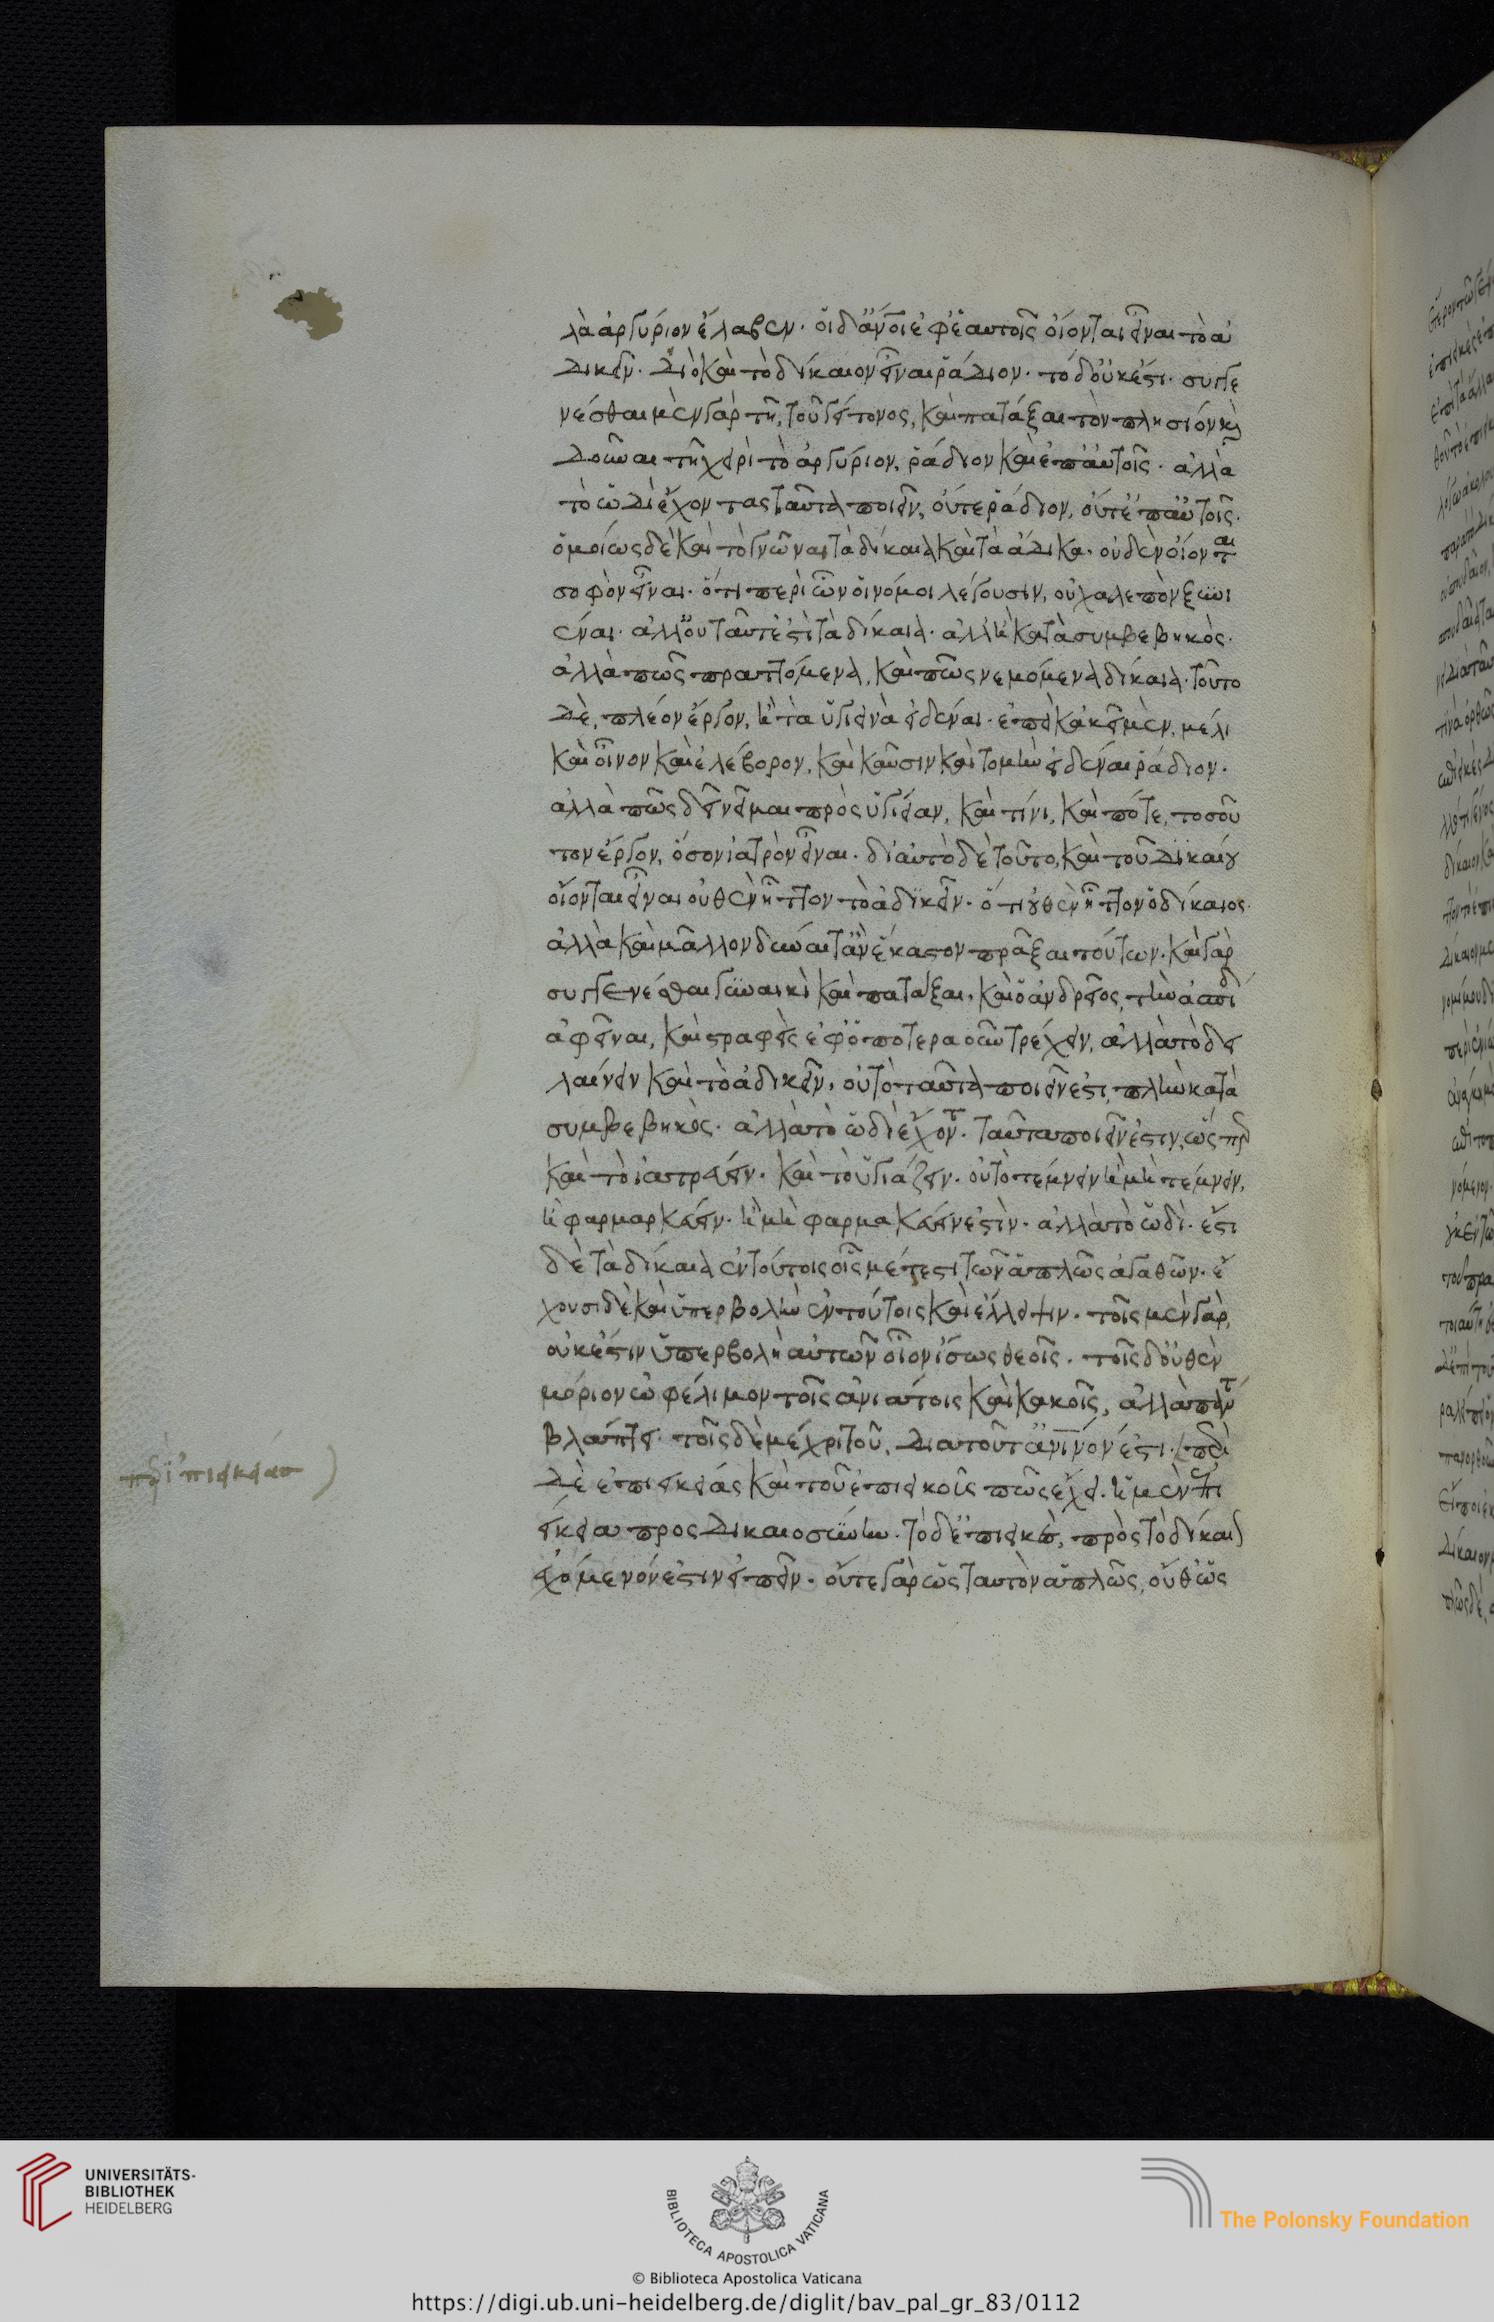 λὰ ἀργύριον ἔλαβεν· οἱ δ' ἄνοι ἐφ' ἑαυτοῖς οἴονται εἶναι τὸ ἀ
δικεῖν· διὸ καὶ τὸ δίκαιον εἶναι ῥάδιον· τὸ δ' οὐκ ἔστι· συγγε
νέσθαι μὲν γὰρ τῆ τοῦ γείτονος, καὶ πατάξαι τὸν πλησίον κ
δοῦναι τῆ χειρὶ τὸ ἀργύριον, ῥάδιον καὶ ἐπ' αὐτοῖς· ἀλλὰ
τὸ ὡδὶ ἔχοντας ταῦτα ποιεῖν, οὔτε ῥάδιον, οὔτ' ἐπ' αὐτοῖς·
ὁμοίως δὲ καὶ τὸ γνῶναι τὰ δίκαια καὶ τὰ ἄδικα· οὐδὲν οἴονται
σοφὸν εἶναι· ὅτι περὶ ὧν οἱ νόμοι λέγουσιν, οὐ χαλεπὸν ξυνι
έναι· ἀλλ' οὐ ταῦτ' ἐστὶ τὰ δίκαια· ἀλλ' ἢ κατὰ συμβεβηκὸς·
ἀλλὰ πῶς πραττόμενα, καὶ πῶς νεμόμενα δίκαια· τοῦτο
δὲ, πλέον ἔργον, ἢ τὰ ὑγιεινὰ εἰδέναι· ἐπεὶ κἀκεῖ μὲν, μέλι
καὶ οἶνον καὶ ἐλέβορον, καὶ καῦσιν καὶ τομὴν εἰδέναι ῥάδιον·
ἀλλὰ πῶς δεῖ νεῖμαι πρὸς ὑγίειαν, καὶ τίνι, καὶ πότε, τοσοῦ
τον ἔργον, ὅσον ἰατρὸν εἶναι· δι' αὐτὸ δὲ τοῦτο, καὶ τοῦ δικαίου
οἴονται εἶναι οὐθὲν ἧττον τὸ ἀδικεῖν· ὅτι οὐθὲν ἧττον ὁ δίκαιος·
ἀλλὰ καὶ μᾶλλον δύναιτ' ἂν ἕκαστον πρᾶξαι τούτων· καὶ γὰρ
συγγενέσθαι γυναικὶ καὶ πατάξαι, καὶ ὁ ἀνδρεῖος, τὴν ἀσπί
ἀφεῖναι, καὶ στραφεὶς ἐφ' ὁποτεραοῦν τρέχειν, ἀλλὰ τὸ δει
λαίνειν καὶ τὸ ἀδικεῖν, οὐ τὸ ταῦτα ποιεῖν ἐστι, πλὴν κατὰ
συμβεβηκὸς· ἀλλὰ τὸ ὡδὶ ἔχοντ· ταῦτα ποιεῖν ἐστιν, ὥσπερ
καὶ τὸ ἰατρεύειν· καὶ τὸ ὑγιάζειν· οὐ τὸ τέμνειν ἢ μὴ τέμνειν,
ἢ φαρμαρκεύειν· ἢ μὴ φαρμακεύειν ἐστὶν· ἀλλὰ τὸ ὡδὶ· ἔστι
δὲ τὰ δίκαια ἐν τούτοις οἷς μέτεστι τῶν ἁπλῶς ἀγαθῶν· ἔ
χουσι δὲ καὶ ὑπερβολὴν ἐν τούτοις καὶ ἔλλειψιν· τοῖς μὲν γὰρ,
οὐκ ἔστιν ὑπερβολὴ αὐτῶν οἷον ἴσως θεοῖς· τοῖς δ' οὐθὲν
μόριον ὠφέλιμον τοῖς ἀνιάτοις καὶ κακοῖς, ἀλλὰ πάντ
βλάπτει· τοῖς δὲ μέχρι του, διὰ τοῦτ' ἀνινόν ἐστι· περὶ
δὲ ἐπιεικείας καὶ τοῦ ἐπιεικοῦς πῶς ἔχει· ἡ μὲν ἐπι
είκεια προς δικαιοσύνην· τὸ δ' ἐπιεικὲς, πρὸς τὸ δίκαιον
ἐχόμενόν ἐστιν εἰπεῖν· οὔτε γὰρ ὡς ταυτὸν ἁπλῶς, οὔθ' ὡς
περὶ ἐπιεικείασ
UNIVERSITÄTS-
BIBLIOTHEK
HEIDELBERG
BIBLIOTECA APOSTOLICA VATICANA
© Biblioteca Apostolica Vaticana
The Polonsky Foundation
https://digi.ub.uni-heidelberg.de/diglit/bav_pal_gr_83/0112